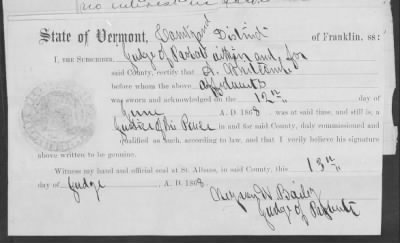 no interest in
State of Vermont, County and District of Franklin, ss:
I, THE SUBSCRIBER, Judge of Probate within and for
said County, certify that A. Whitcomb
before whom the above affidavits
was sworn and acknowledged on the 12" day of
June A. D. 1868 was at said time, and still is, a
Justice of the Peace in and for said County, duly commissioned and
qualified as such, according to law, and that I verily believe his signature
above written to be genuine.
Witness my hand and official seal at St. Albans, in said County, this 13"
day of Judge A. D. 1868
Bailey
Judge of Probate